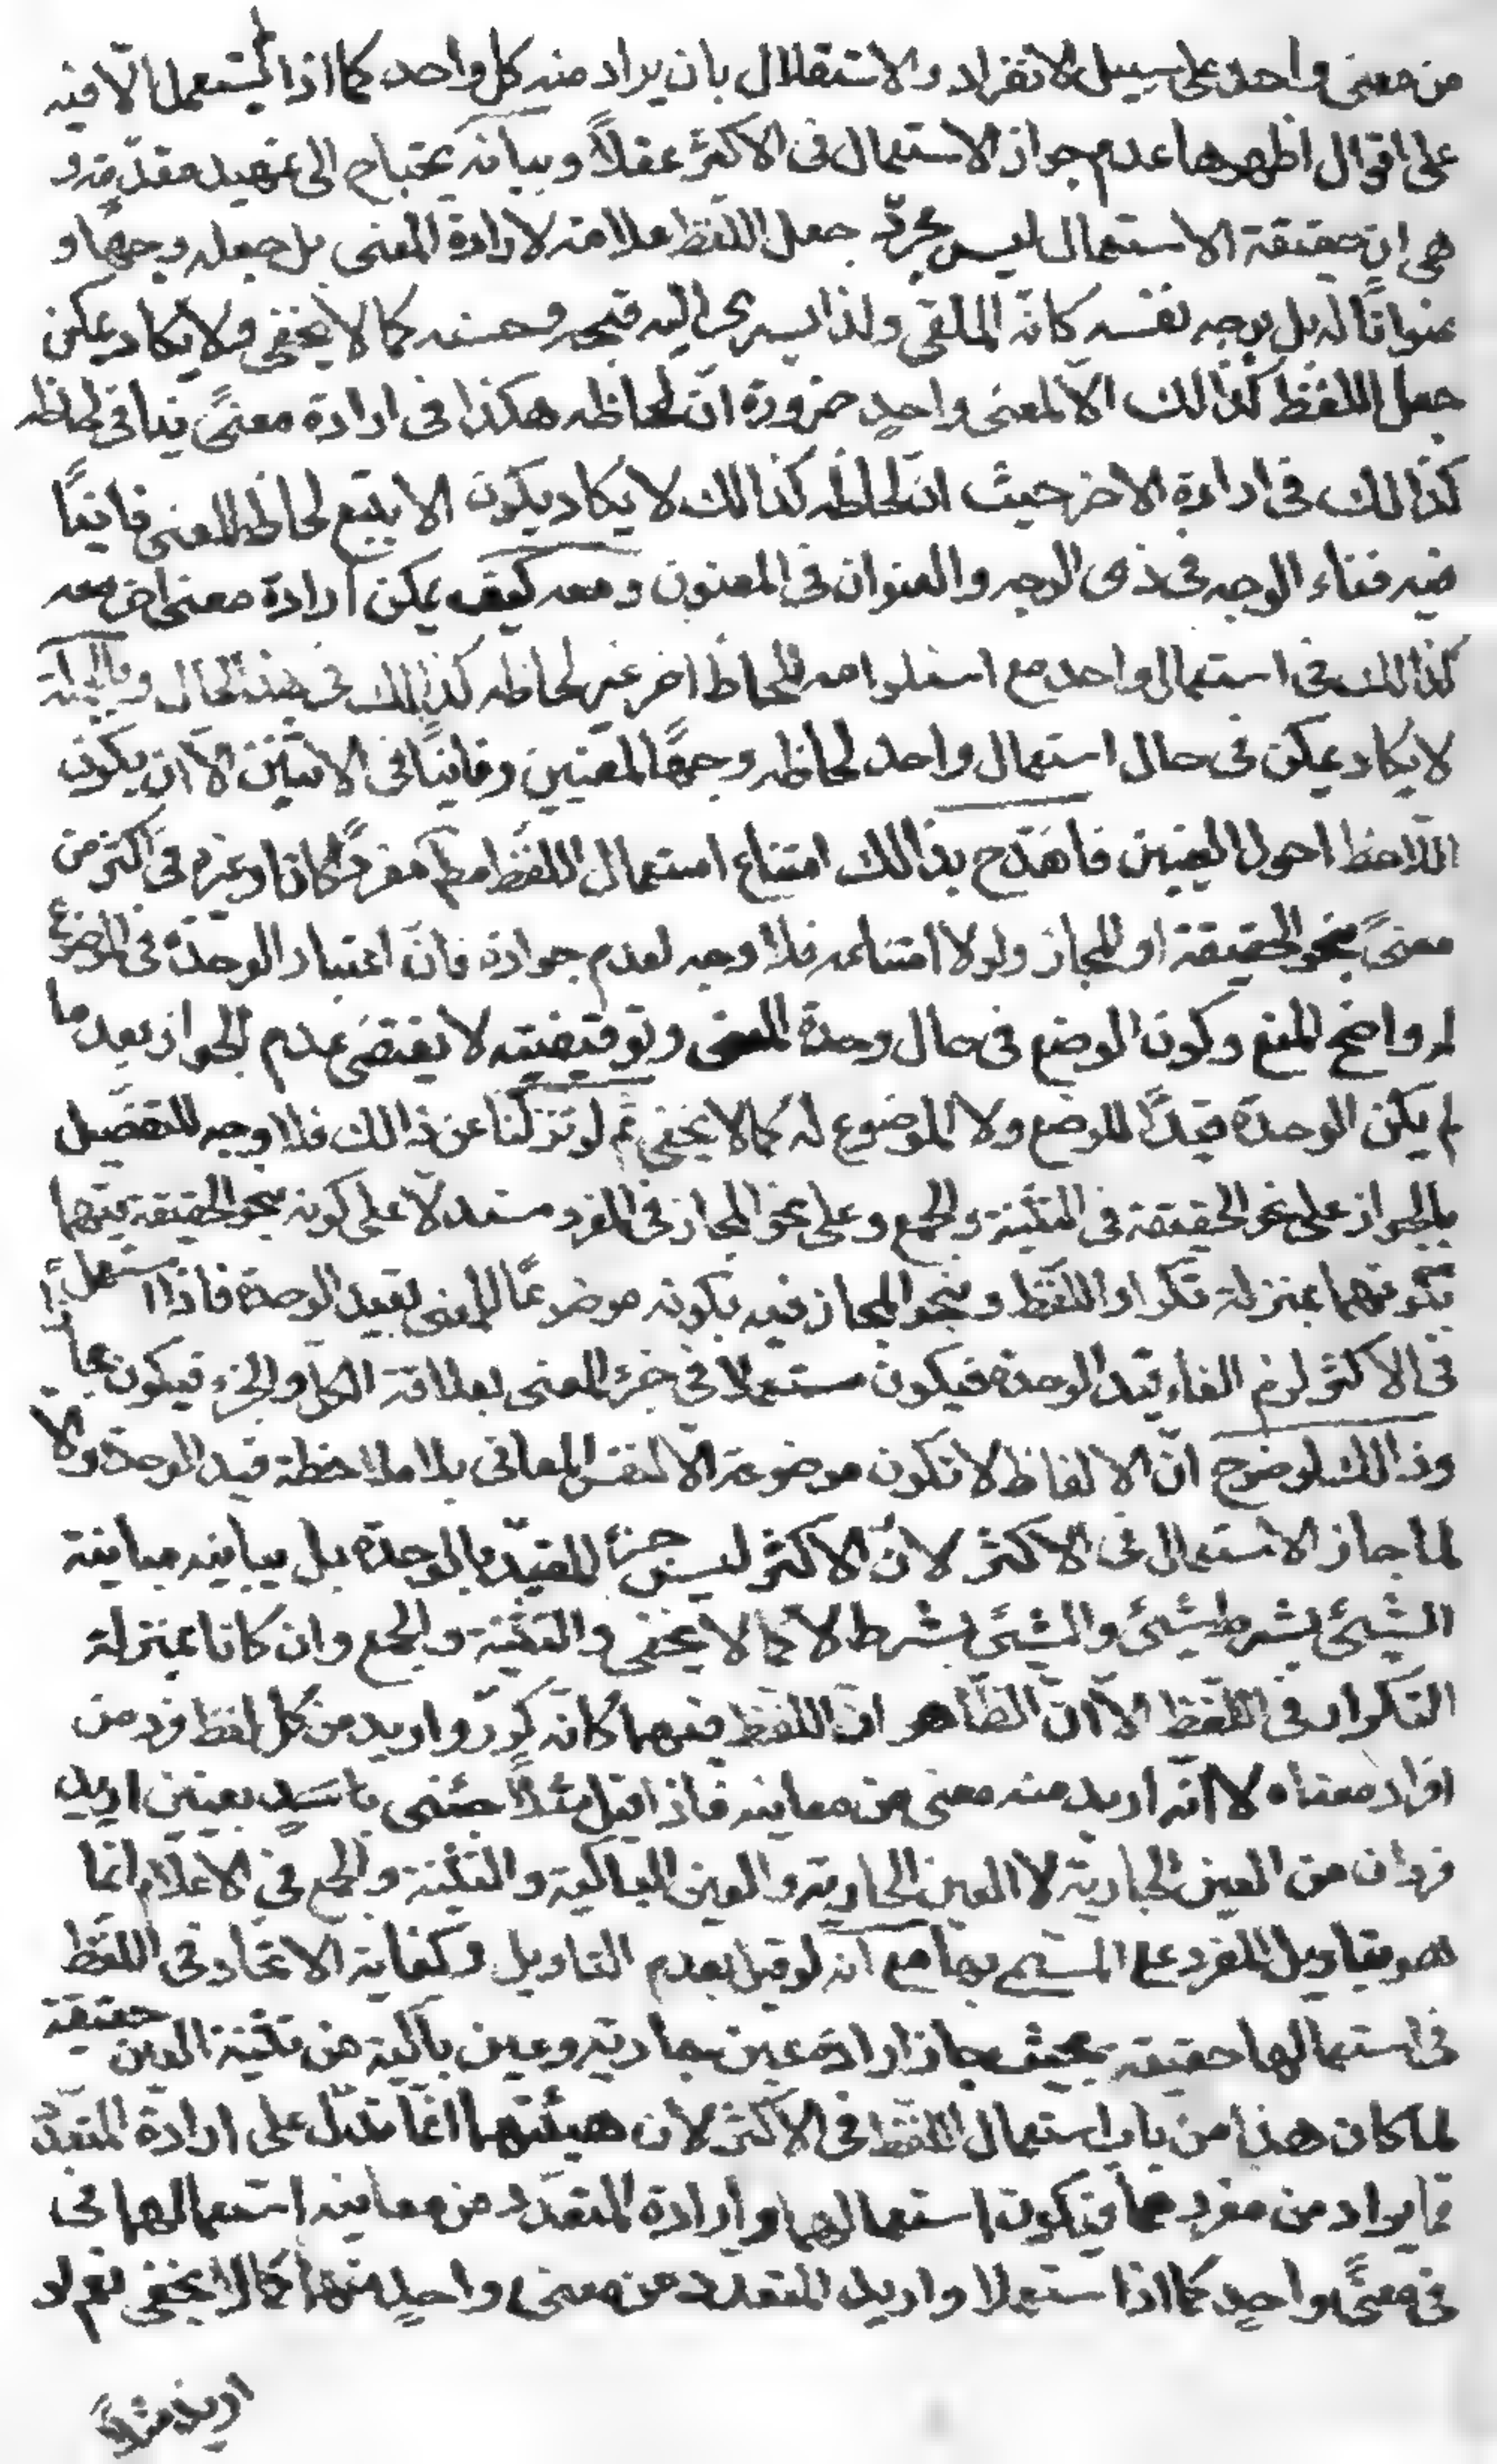 من معنى واحد على سبيل الانفراد والاستقلال بان يراد منه كل واحد كما اذا لم يستعمل الّا فيه
على اقوال اظهرها عدم جواز الاستعمال فى الاكثر عقلاً وبيانه يحتاج الى تمهيد مقدّمة و
هى ان حقيقة الاستعمال ليس مجرّد جعل اللفظ علامة لارادة المعنى بل جعله وجهًا و
عنوانًا له بل بوجه نفسه كانّه الملقى ولذا يسرى اليه قبحه وحسنه كما لا يخفى ولا يكاد يمكن
جعل اللفظ كذالك الّا لمعنى واحدٍ ضرورة انّ لحاظه هكذا فى ارادة معنىً ينافى لحاظه
كذالك فى ارادة الاخر حيث ان لحاظه كذالك لا يكاد يكون الا بتبع لحاظ المعنى فانيًا
فيه فناء الوجه فى ذى الوجه والعنوان فى المعنون ومعه كيف يمكن ارادة معنى اخر معه
كذالك فى استعمال واحد مع استلزامه للحاظ اخر غير لحاظه كذالك فى هذا الحال وبالجملة
لا يكاد يمكن فى حال استعمال واحد لحاظه وجهًا لمعنيين وفانيًا فى الاثنين الّا ان يكون
اللاحظ احول العينين فانقدح بذالك امتناع استعمال اللفظ مطم مفردًا كان او غيره فى اكثر من
معنىً بنحو الحقيقة او المجاز ولولا امتناعه فلا وجه لعدم جوازه فانّ اعتبار الوحدة فى الموضوع
له واضح المنع وكون الوضع فى حال وحدة المعنى وتوقيفيته لا يقتضى عدم الجواز بعد ما
لم يكن الوحدة قيدًا للوضع ولا للموضوع له كما لا يخفى ثم لو تنزلنا عن ذالك فلا وجه للتفصيل
بالجواز على نحو الحقيقة فى التثنية والجمع وعلى نحو المجاز فى المفرد مستدلّا على كونه بنحو الحقيقة فيهما
بكونهما بمنزلة تكرار اللفظ وبنحو المجاز فيه بكونه موضوعًا للمعنى بقيد الوحدة فاذا استعمل
فى الاكثر لزم الغاء قيد الوحدة فيكون مستعملا فى جزء المعنى بعلاقة الكل والجزء فيكون مجازًا
وذالك لوضوح انّ الالفاظ لا تكون موضوعة الّا لنفس المعانى بلا ملاحظة قيد الوحدة والّا
لما جاز الاستعمال فى الاكثر لانّ الاكثر ليس جزء المقيّد بالوحدة بل يباينه مباينة
الشيئ بشرط شيئ والشيئ بشرط لا كما لا يخفى والتثنية والجمع وان كانا بمنزلة
التكرار فى اللفظ الّا انّ الظّاهر ان اللفظ فيهما كانّه كرّر واريد من كل لفظ فرد من
افراد معناه لا انّه اريد منه معنى من معانيه فاذا قيل مثلاً جئنى بعينين اريد
فردان من العين الجارية لا العين الجارية والعين الباكية والتثنية والجمع فى الاعلام انّما
هو بتاويل المفرد على المسمّى بها مع انّه لو قيل بعدم التاويل وكفاية الاتحاد فى اللفظ
فى استعمالها حقيقة بحيث جاز ارادة عين جارية وعين باكية من تثنية العين حقيقة
لما كان هذا من باب استعمال اللفظ فى الاكثر لان هيئتهما انّما تدلّ على ارادة المتعدّد
ممّا يراد من مفردهما فيكون استعمالهما وارادة المتعدّد من معانيه استعمالهما فى
فى معنىً واحدٍ كما اذا استعملا واريد المتعدد من معنى واحدٍ منهما كما لا يخفى نعم لو
اريد مثلاً